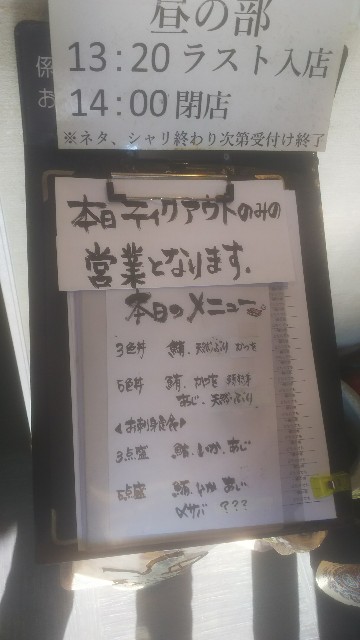 昼の部
13:20 ラスト入店
14:00 閉店
※ネタ、シャリ終わり次第受付け終了
係
お
本日テイクアウトのみの
営業となります。
本日のメニュー
3色丼 鮪、天然ぶり かつを
5色丼 鮪、かつを
あじ、天然ぶり
<お刺身定食>
3点盛 鮪、いか、あじ
5点盛 鮪、いか あじ
〆サバ ???